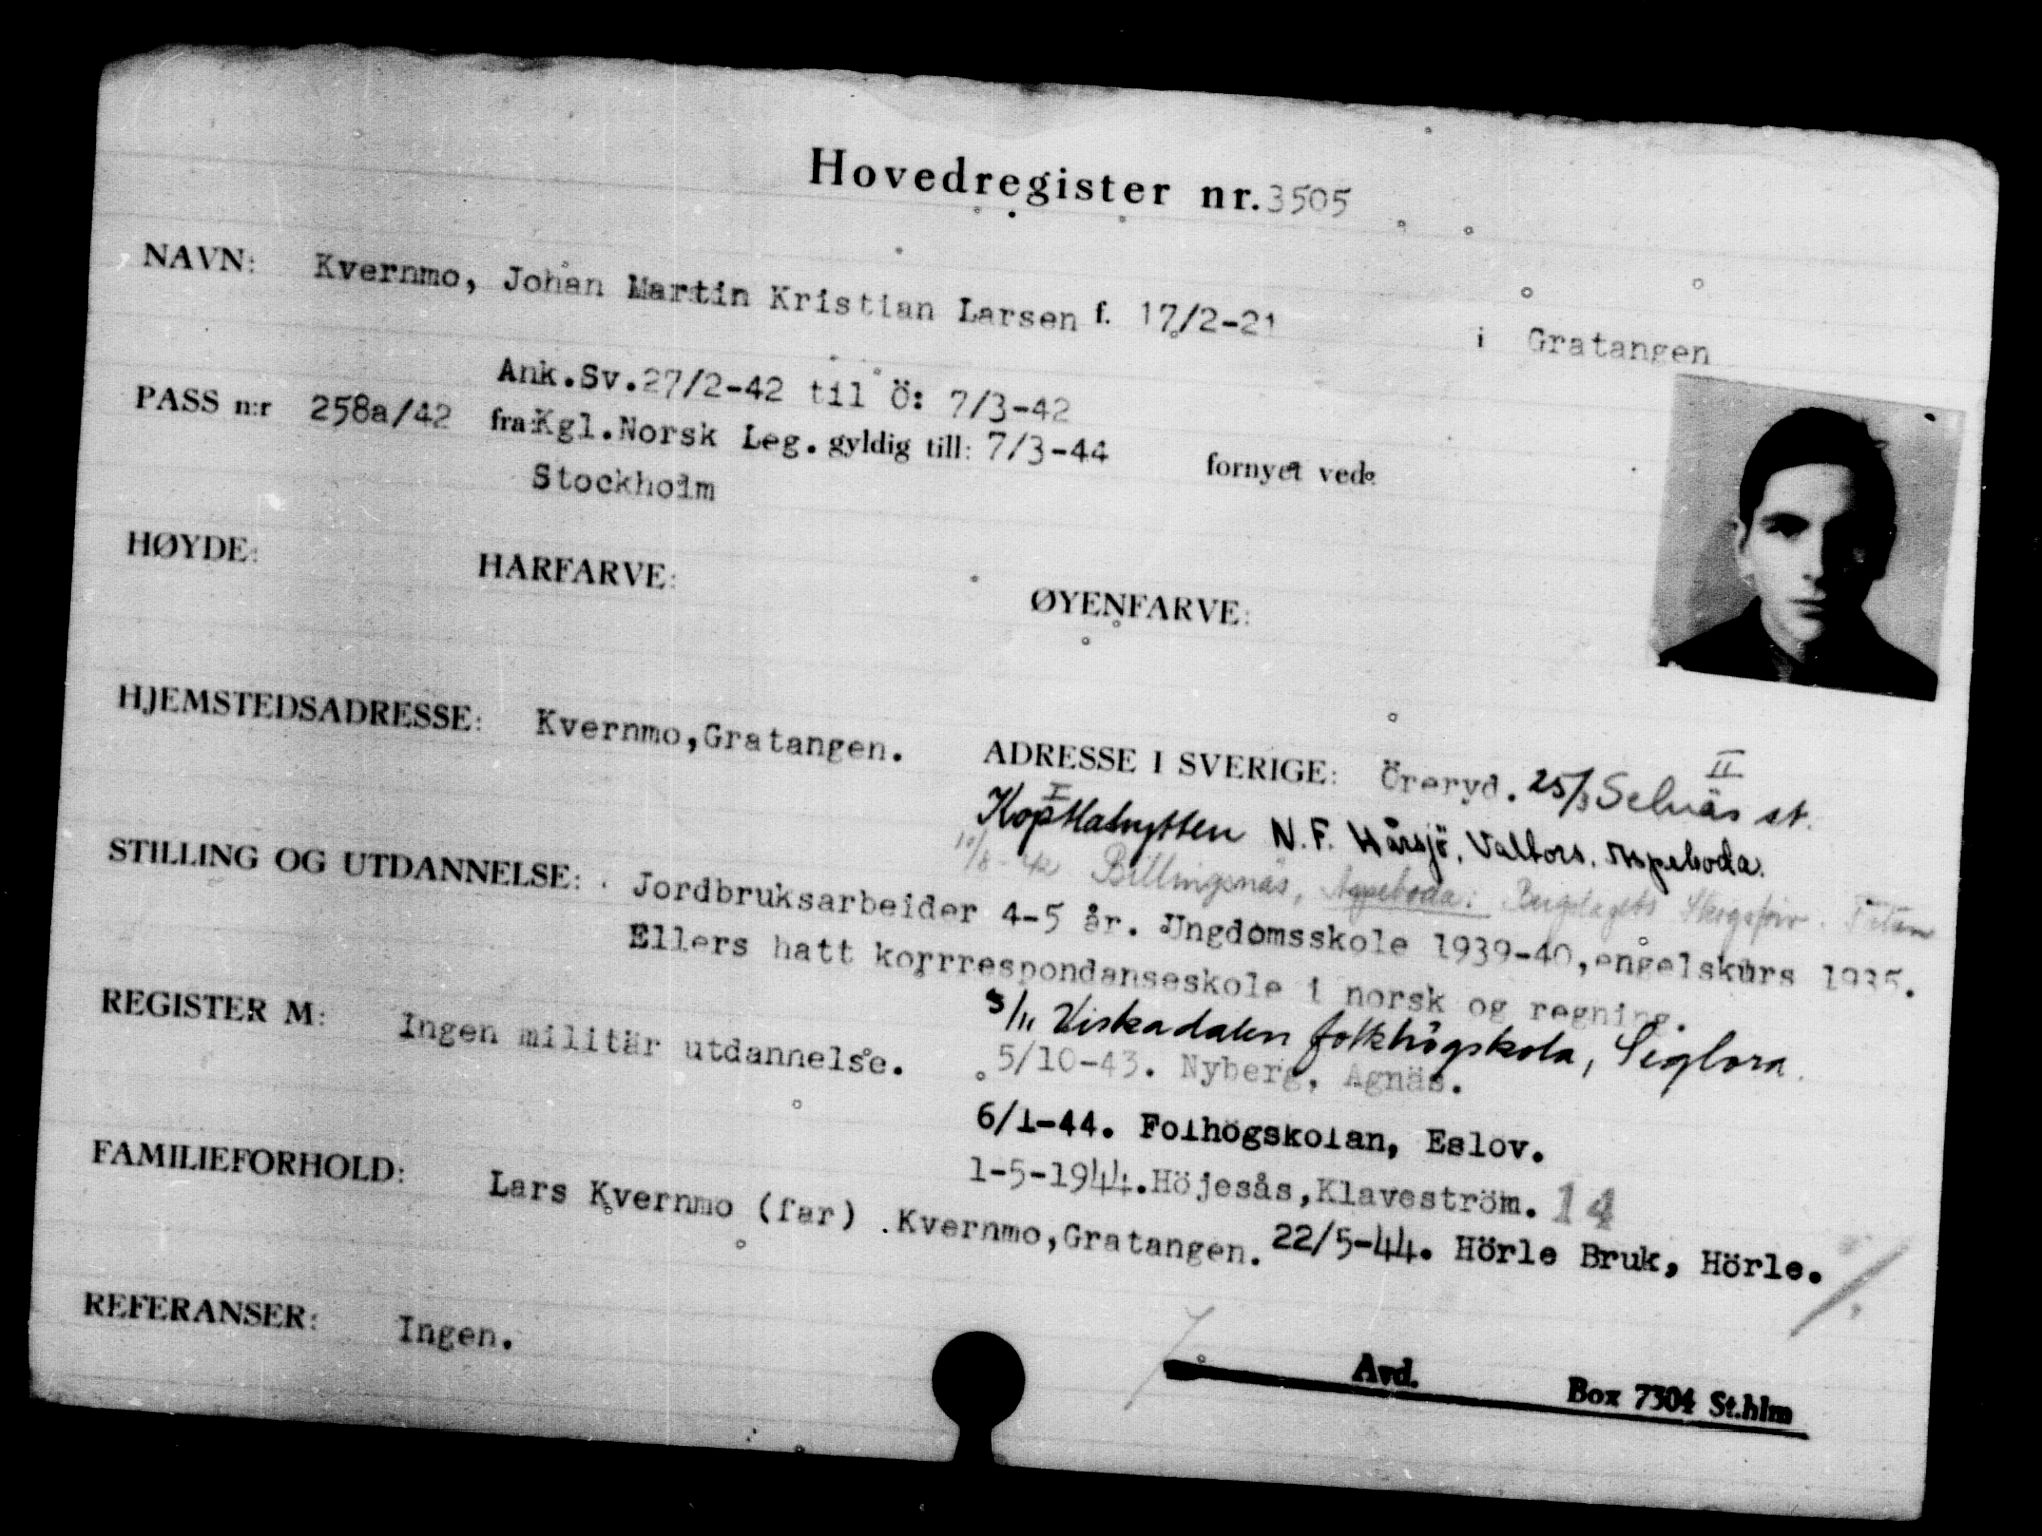 Hovedregister nr. 3505
NAVN: Kvernmo, Johan Martin Kristian Larsen f. 17/2-21 i Gratangen
Ank.Sv.27/2-42 til Ö: 7/3-42
PASS n:r 258a/42 fra: Kgl.Norsk Leg. gyldig till: 7/3-44 fornyet ved:
Stockholm
HØYDE: HARFARVE: ØYENFARVE:
HJEMSTEDSADRESSE: Kvernmo,Gratangen. ADRESSE I SVERIGE: Öreryd. 25/3 Selnäs st. II
I
N.F. Hårsjö, Valbors, Aspeboda.
10/8-42 Billingsnäs, Aspeboda: Bergslagets
STILLING OG UTDANNELSE: Jordbruksarbeider 4-5 år. Ungdomsskole 1939-40,engelskurs 1935.
Ellers hatt korrrespondanseskole i norsk og regning.
3/11 Viskadalen folkhögskola, Seglora.
REGISTER M: Ingen militär utdannelse. 5/10-43. Nyberg, Agnäs.
6/1-44. Folhögskolan, Eslov.
1-5-1944.Höjesås,Klaveström. 14
FAMILIEFORHOLD: Lars Kvernmo (far) .Kvernmo,Gratangen. 22/5-44. Hörle Bruk, Hörle.
REFERANSER: Ingen.
Avd. Box 7304 St.hlm